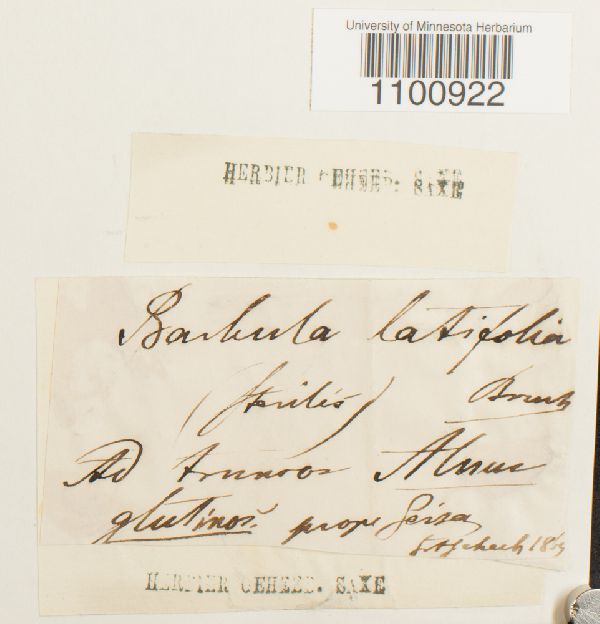 University of Minnesota Herbarium
1100922
HERBIER GEHEEB. SAXE
Barbula latifolia
(sterilis) Bruch
Ad truncos Alnus
glutinos. prope Geisa
HERBIER GEHEEB. SAXE